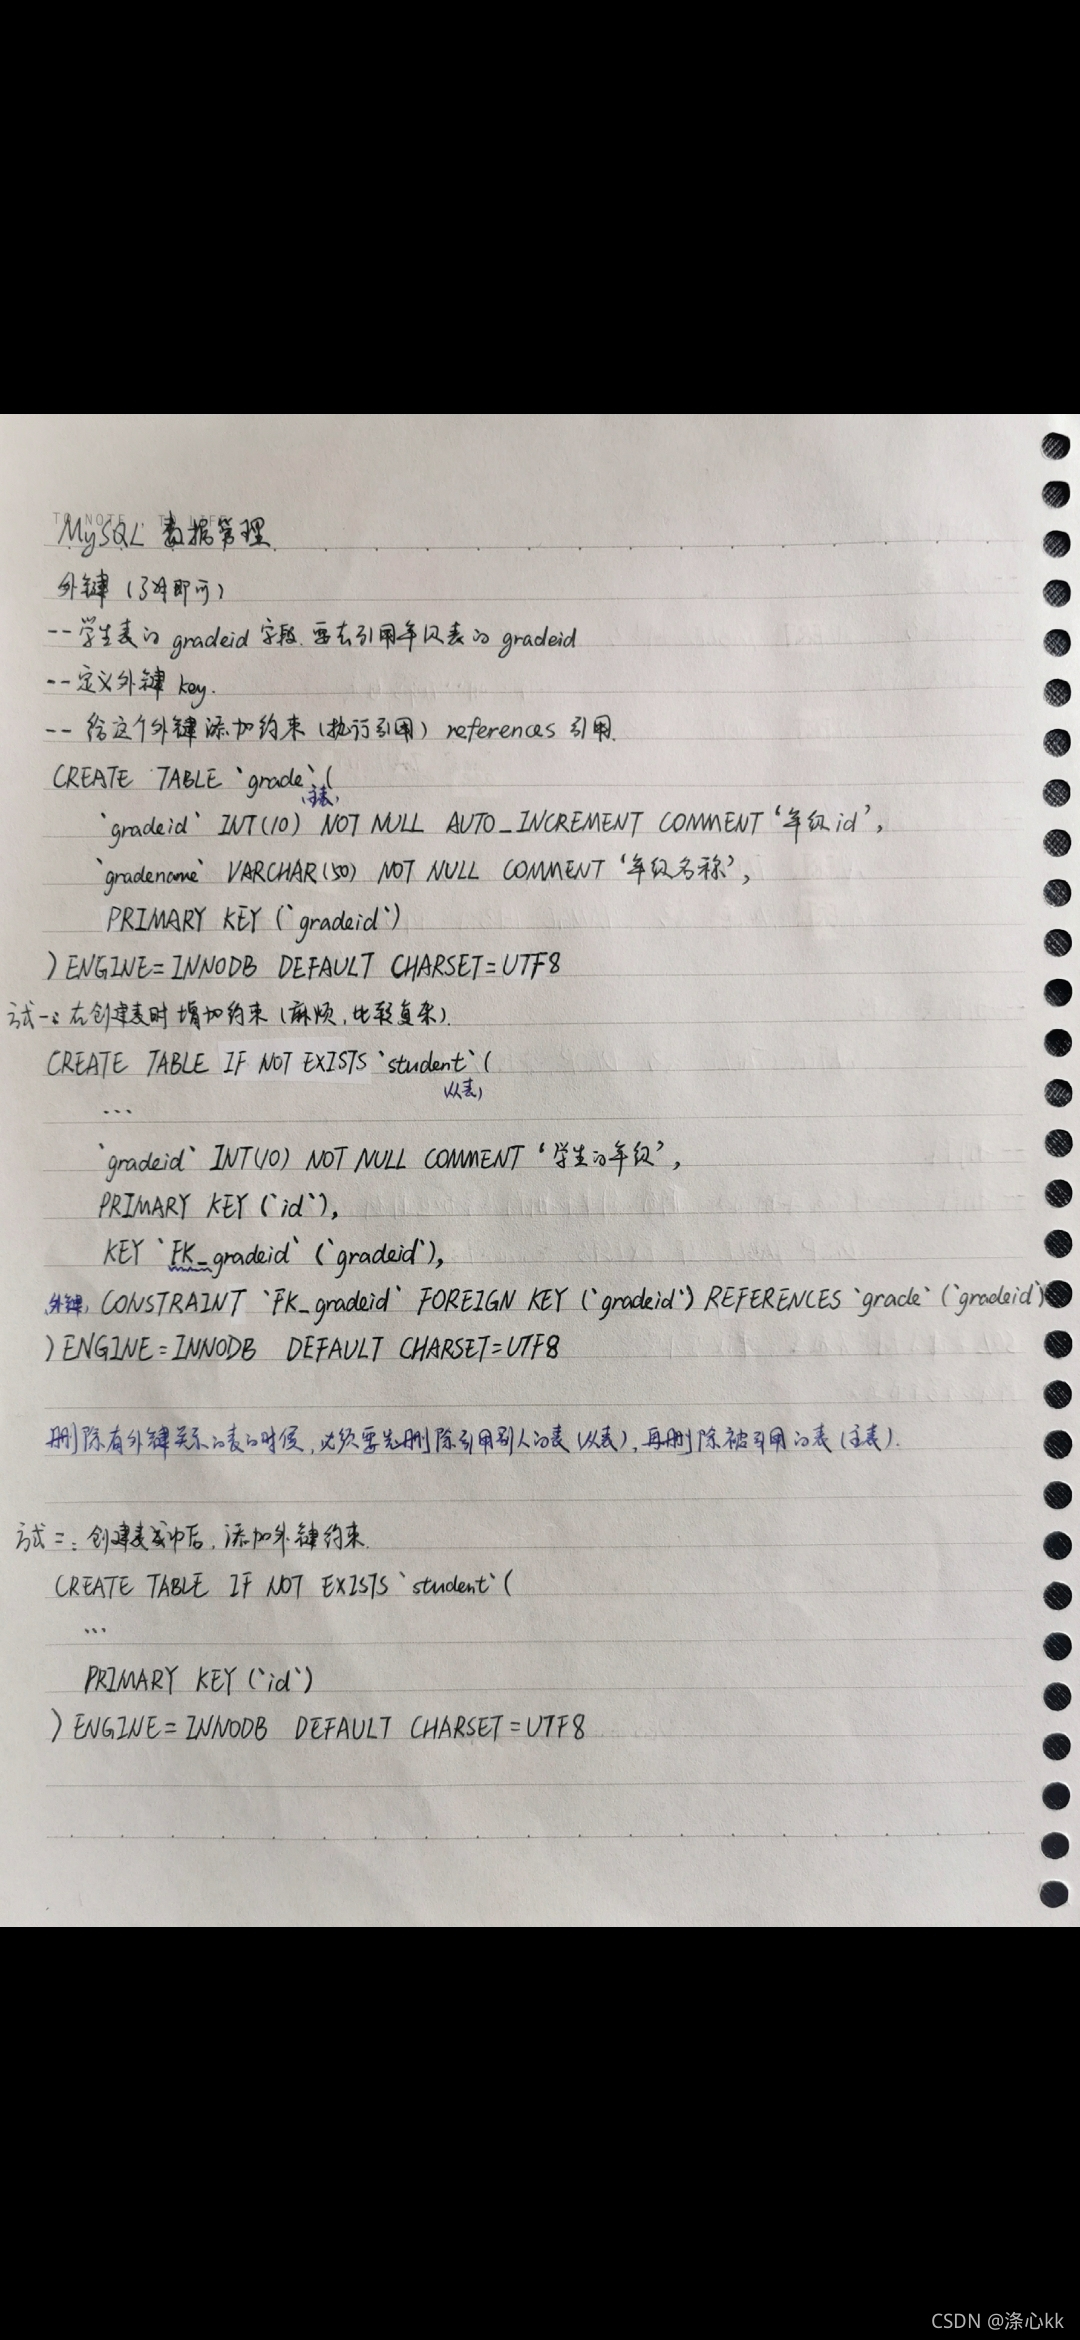 MySQL 数据管理
外键（了解即可）
-- 学生表的 gradeid 字段.要去引用年级表的 gradeid
-- 定义外键 key.
-- 给这个外键添加约束（执行引用）references 引用.
CREATE TABLE `grade`(
（主表）
`gradeid` INT(10) NOT NULL AUTO_INCREMENT COMMENT '年级id',
`gradename` VARCHAR(50) NOT NULL COMMENT '年级名称',
PRIMARY KEY (`gradeid`)
) ENGINE=INNODB DEFAULT CHARSET=UTF8
方式一：在创建表时增加约束（麻烦，比较复杂）.
CREATE TABLE IF NOT EXISTS `student`(
（从表）
...
`gradeid` INT(10) NOT NULL COMMENT '学生的年级',
PRIMARY KEY (`id`),
KEY `FK_gradeid` (`gradeid`),
外键, CONSTRAINT `FK_gradeid` FOREIGN KEY (`gradeid`) REFERENCES `grade` (`gradeid`)
) ENGINE=INNODB DEFAULT CHARSET=UTF8
删除有外键关系的表的时候,必须要先删除引用别人的表（从表）,再删除被引用的表（主表）.
方式二：创建表成功后,添加外键约束.
CREATE TABLE IF NOT EXISTS `student`(
...
PRIMARY KEY (`id`)
) ENGINE=INNODB DEFAULT CHARSET=UTF8
CSDN @涤心kk